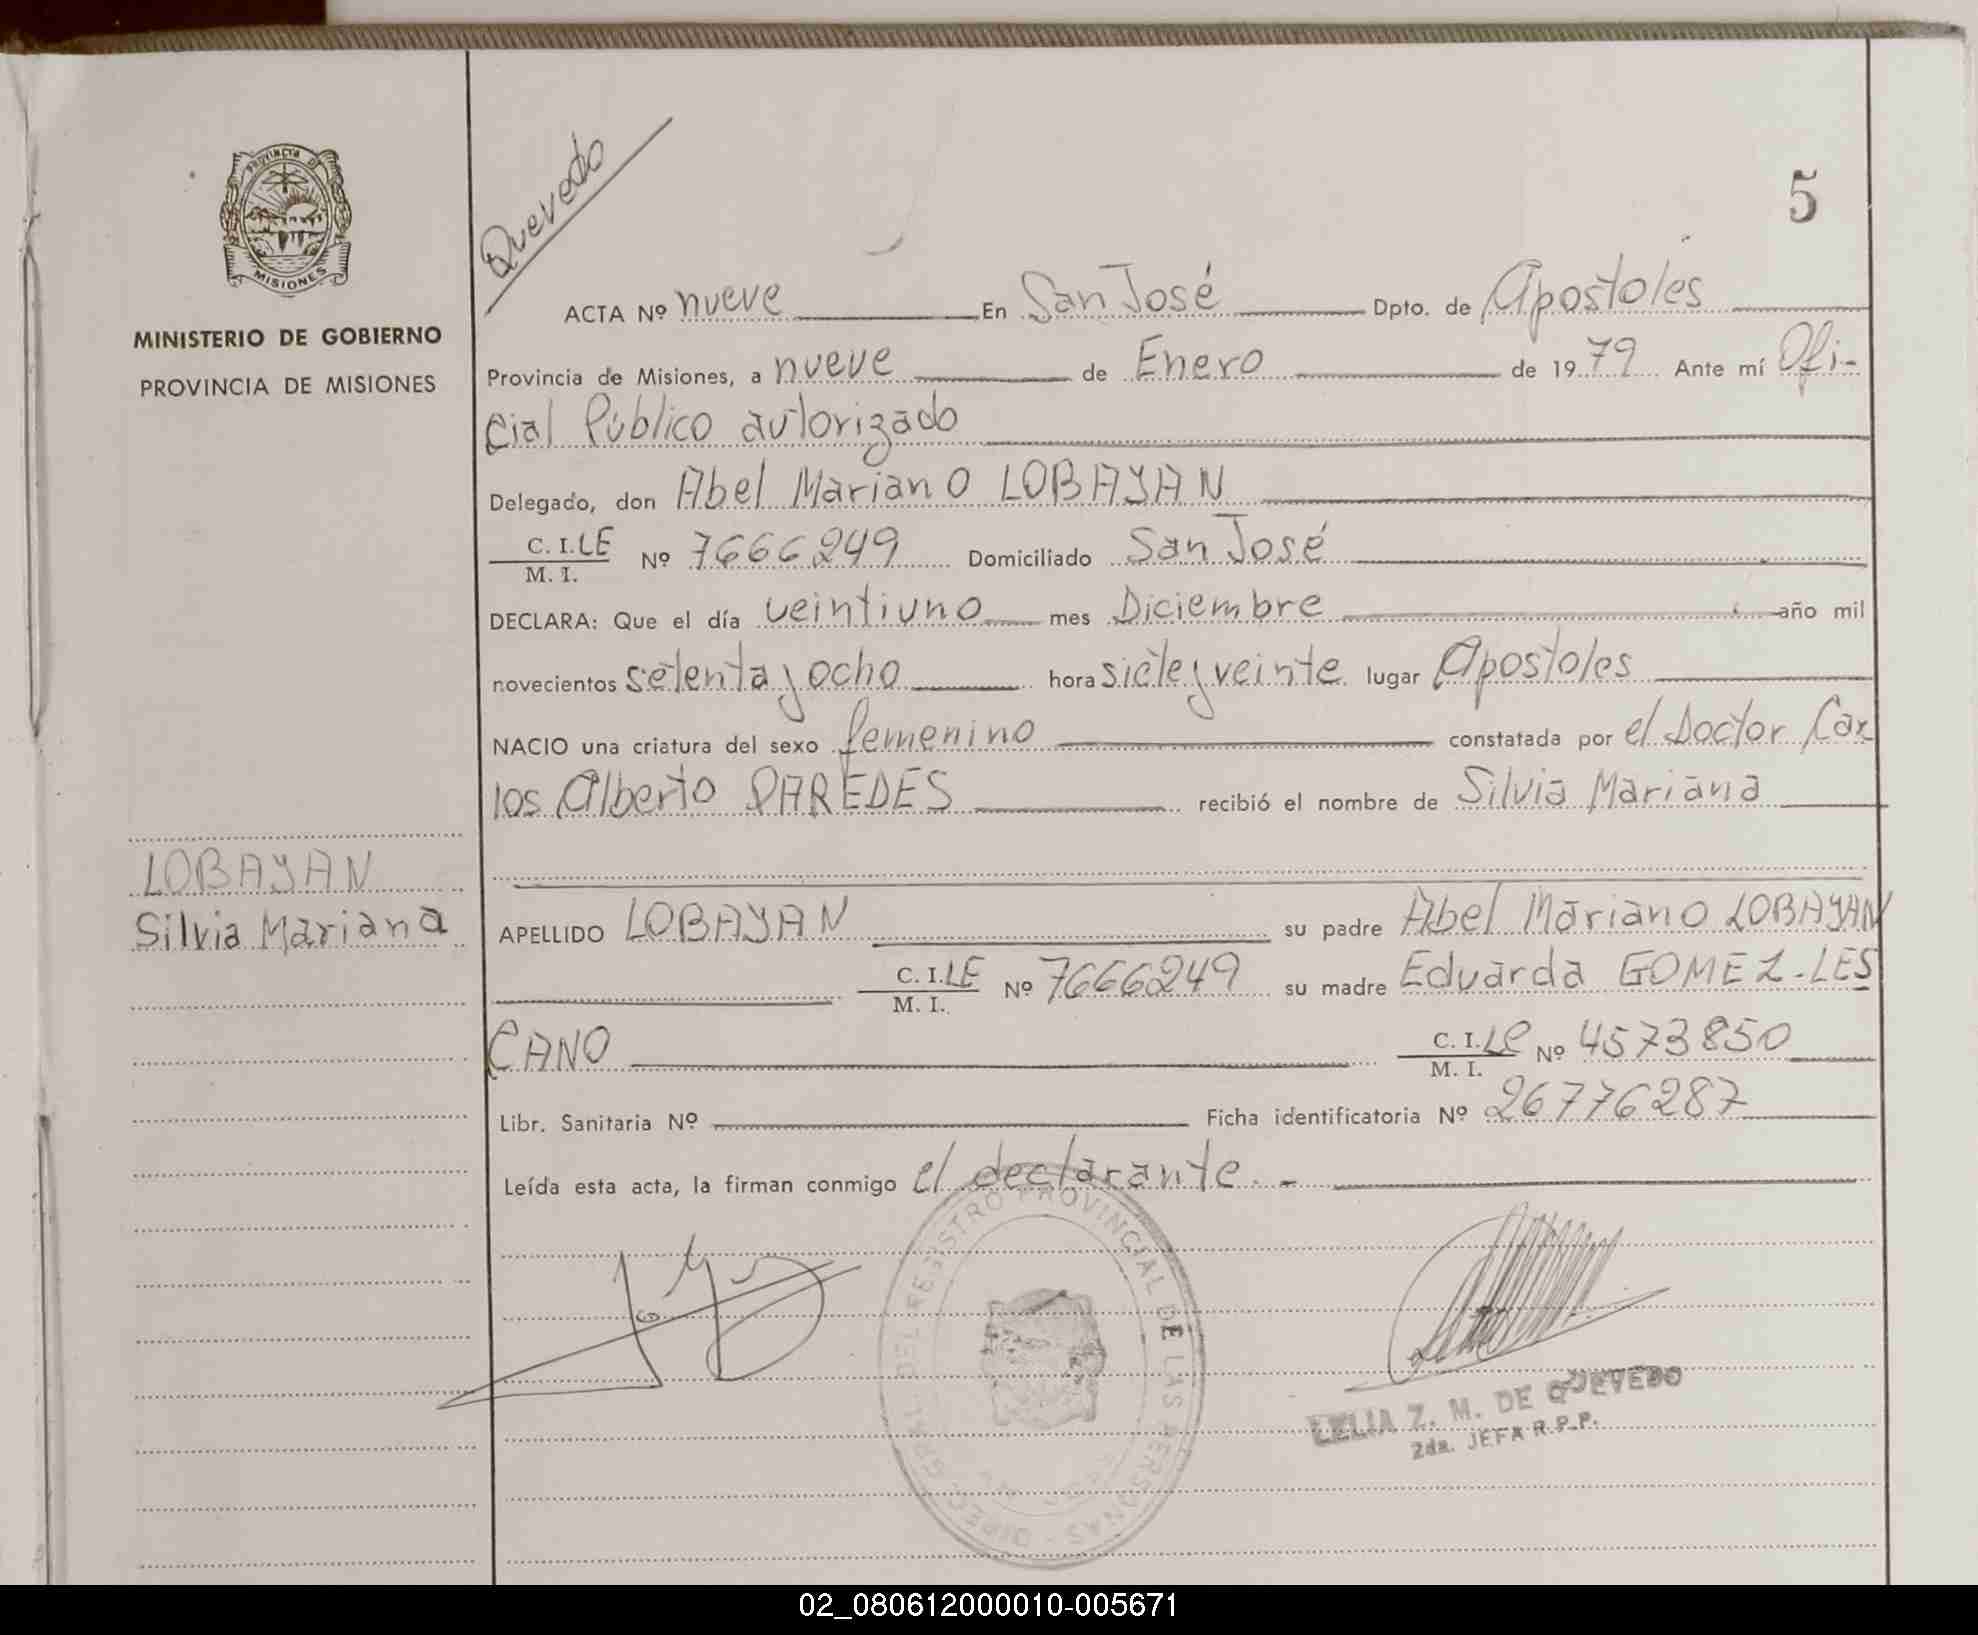 PROVINCIA DE
MISIONES
MINISTERIO DE GOBIERNO
PROVINCIA DE MISIONES
LOBAYAN
Silvia Mariana
Quevedo
5
ACTA Nº nueve En San José Dpto. de Apostoles
Provincia de Misiones, a nueve de Enero de 1979 Ante mí Ofi-
cial Público autorizado
Delegado, don Abel Mariano LOBAYAN
C. I. LE
M. I.
Nº 7666249 Domiciliado San José
DECLARA: Que el día veintiuno mes Diciembre año mil
novecientos setenta y ocho hora siete y veinte lugar Apostoles
NACIO una criatura del sexo femenino constatada por el Doctor Car
los Alberto PAREDES recibió el nombre de Silvia Mariana
APELLIDO LOBAYAN su padre Abel Mariano LOBAYAN
C. I. LE
M. I.
Nº 7666249 su madre Eduarda GOMEZ-LES
CANO
C. I. LE
M. I.
Nº 4573850
Libr. Sanitaria Nº Ficha identificatoria Nº 26776287
Leída esta acta, la firman conmigo el declarante. -
DIREC. GRAL. DEL REGISTRO PROVINCIAL DE LAS PERSONAS
LELIA Z. M. DE QUEVEDO
2da. JEFA R.P.P.
02_080612000010-005671